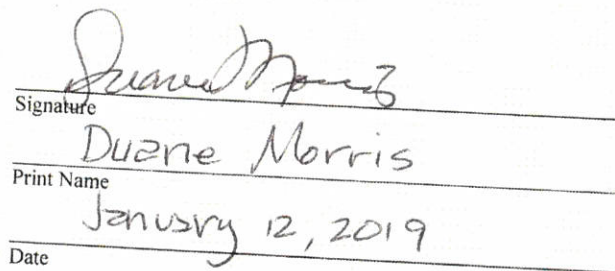 Duane Morris
Signature
Duane Morris
Print Name
January 12, 2019
Date